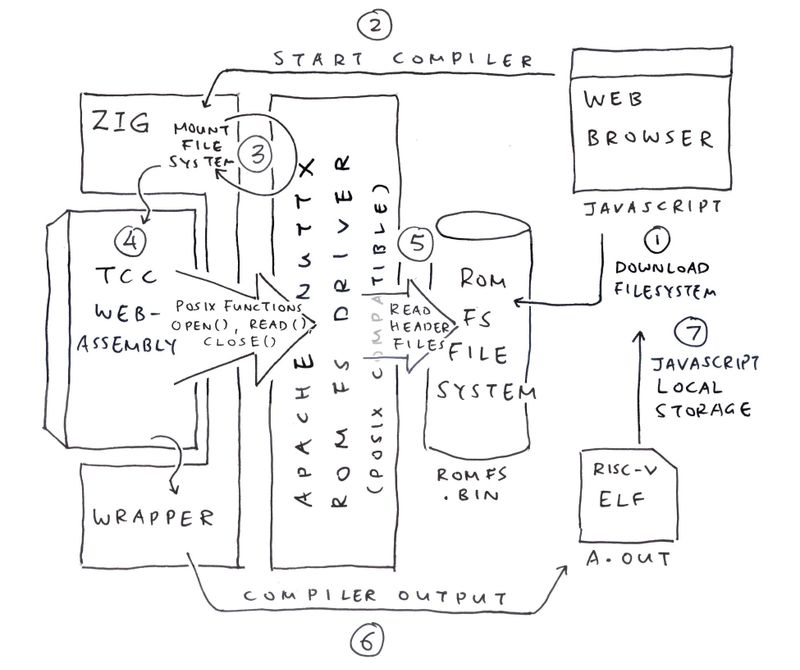 2
START COMPILER
ZIG
MOUNT
FILE
SYSTEM
3
4
TCC
WEB-
ASSEMBLY
POSIX FUNCTIONS
OPEN(), READ()
CLOSE()
WRAPPER
APACHE NUTTX
ROM FS DRIVER
(POSIX COMPATIBLE)
5
READ
HEADER
FILES
ROM
FS
FILE
SYSTEM
ROMFS
.BIN
WEB
BROWSER
JAVASCRIPT
1
DOWNLOAD
FILESYSTEM
7
JAVASCRIPT
LOCAL
STORAGE
RISC-V
ELF
A.OUT
COMPILER OUTPUT
6